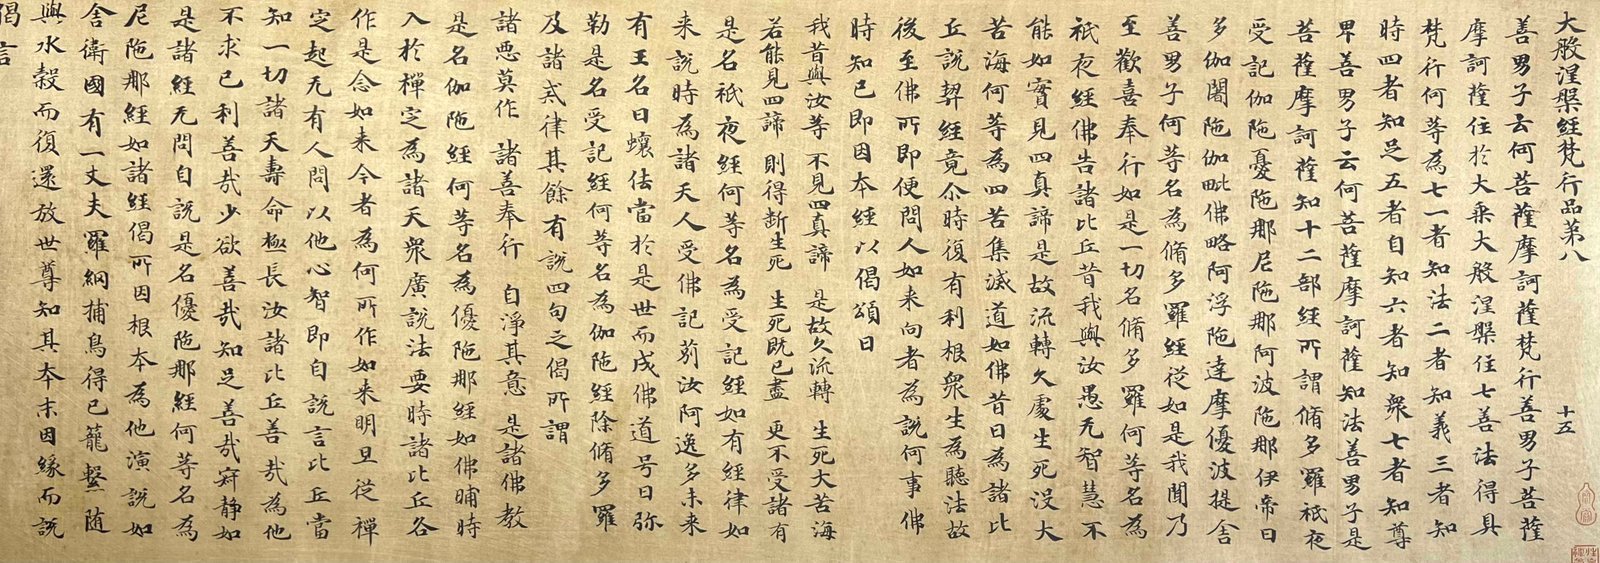 大般涅槃經梵行品第八 十五
善男子云何菩薩摩訶薩梵行善男子菩薩
摩訶薩住於大乘大般涅槃住七善法得具
梵行何等為七一者知法二者知義三者知
時四者知足五者自知六者知衆七者知尊
卑善男子云何菩薩摩訶薩知法善男子是
菩薩摩訶薩知十二部經所謂脩多羅祇夜
受記伽陁憂陁那尼陁那阿波陁那伊帝曰
多伽闍陁伽毗佛略阿浮陁達摩優波提舍
善男子何等名為脩多羅經從如是我聞乃
至歡喜奉行如是一切名脩多羅何等名為
祇夜經佛告諸比丘昔我與汝愚无智慧不
能如實見四真諦是故流轉久處生死没大
苦海何等為四苦集滅道如佛昔日為諸比
丘說契經竟尒時復有利根衆生為聽法故
後至佛所即便問人如来向者為說何事佛
時知已即因本經以偈頌曰
我昔與汝等 不見四真諦 是故久流轉 生死大苦海
若能見四諦 則得断生死 生死既已盡 更不受諸有
是名祇夜經何等名為受記經如有經律如
来說時為諸天人受佛記莂汝阿逸多未来
有王名曰蠰佉當於是世而成佛道号曰弥
勒是名受記經何等名為伽陁經除脩多羅
及諸戒律其餘有說四句之偈所謂
諸惡莫作 諸善奉行 自淨其意 是諸佛教
是名伽陁經何等名為優陁那經如佛晡時
入於禪定為諸天衆廣說法要時諸比丘各
作是念如来今者為何所作如来明旦從禪
定起无有人問以他心智即自說言比丘當
知一切諸天壽命極長汝諸比丘善哉為他
不求己利善哉少欲善哉知足善哉寂静如
是諸經无問自說是名優陁那經何等名為
尼陁那經如諸經偈所因根本為他演說如
舍衛國有一丈夫羅網捕鳥得已籠繫随
與水穀而復還放世尊知其本末因緣而說
偈言